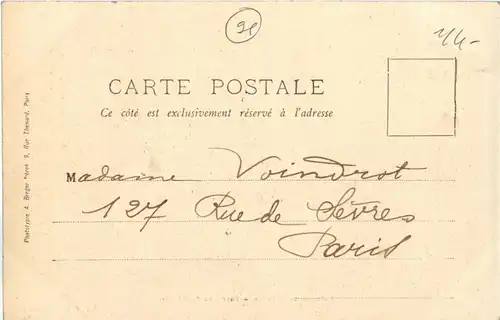 91
44-
CARTE POSTALE
Ce côté est exclusivement réservé à l'adresse
Madame Voindrot
127 Rue de Sèvres
Paris
Phototypie A. Bergeret 9, Rue Thenard, Paris